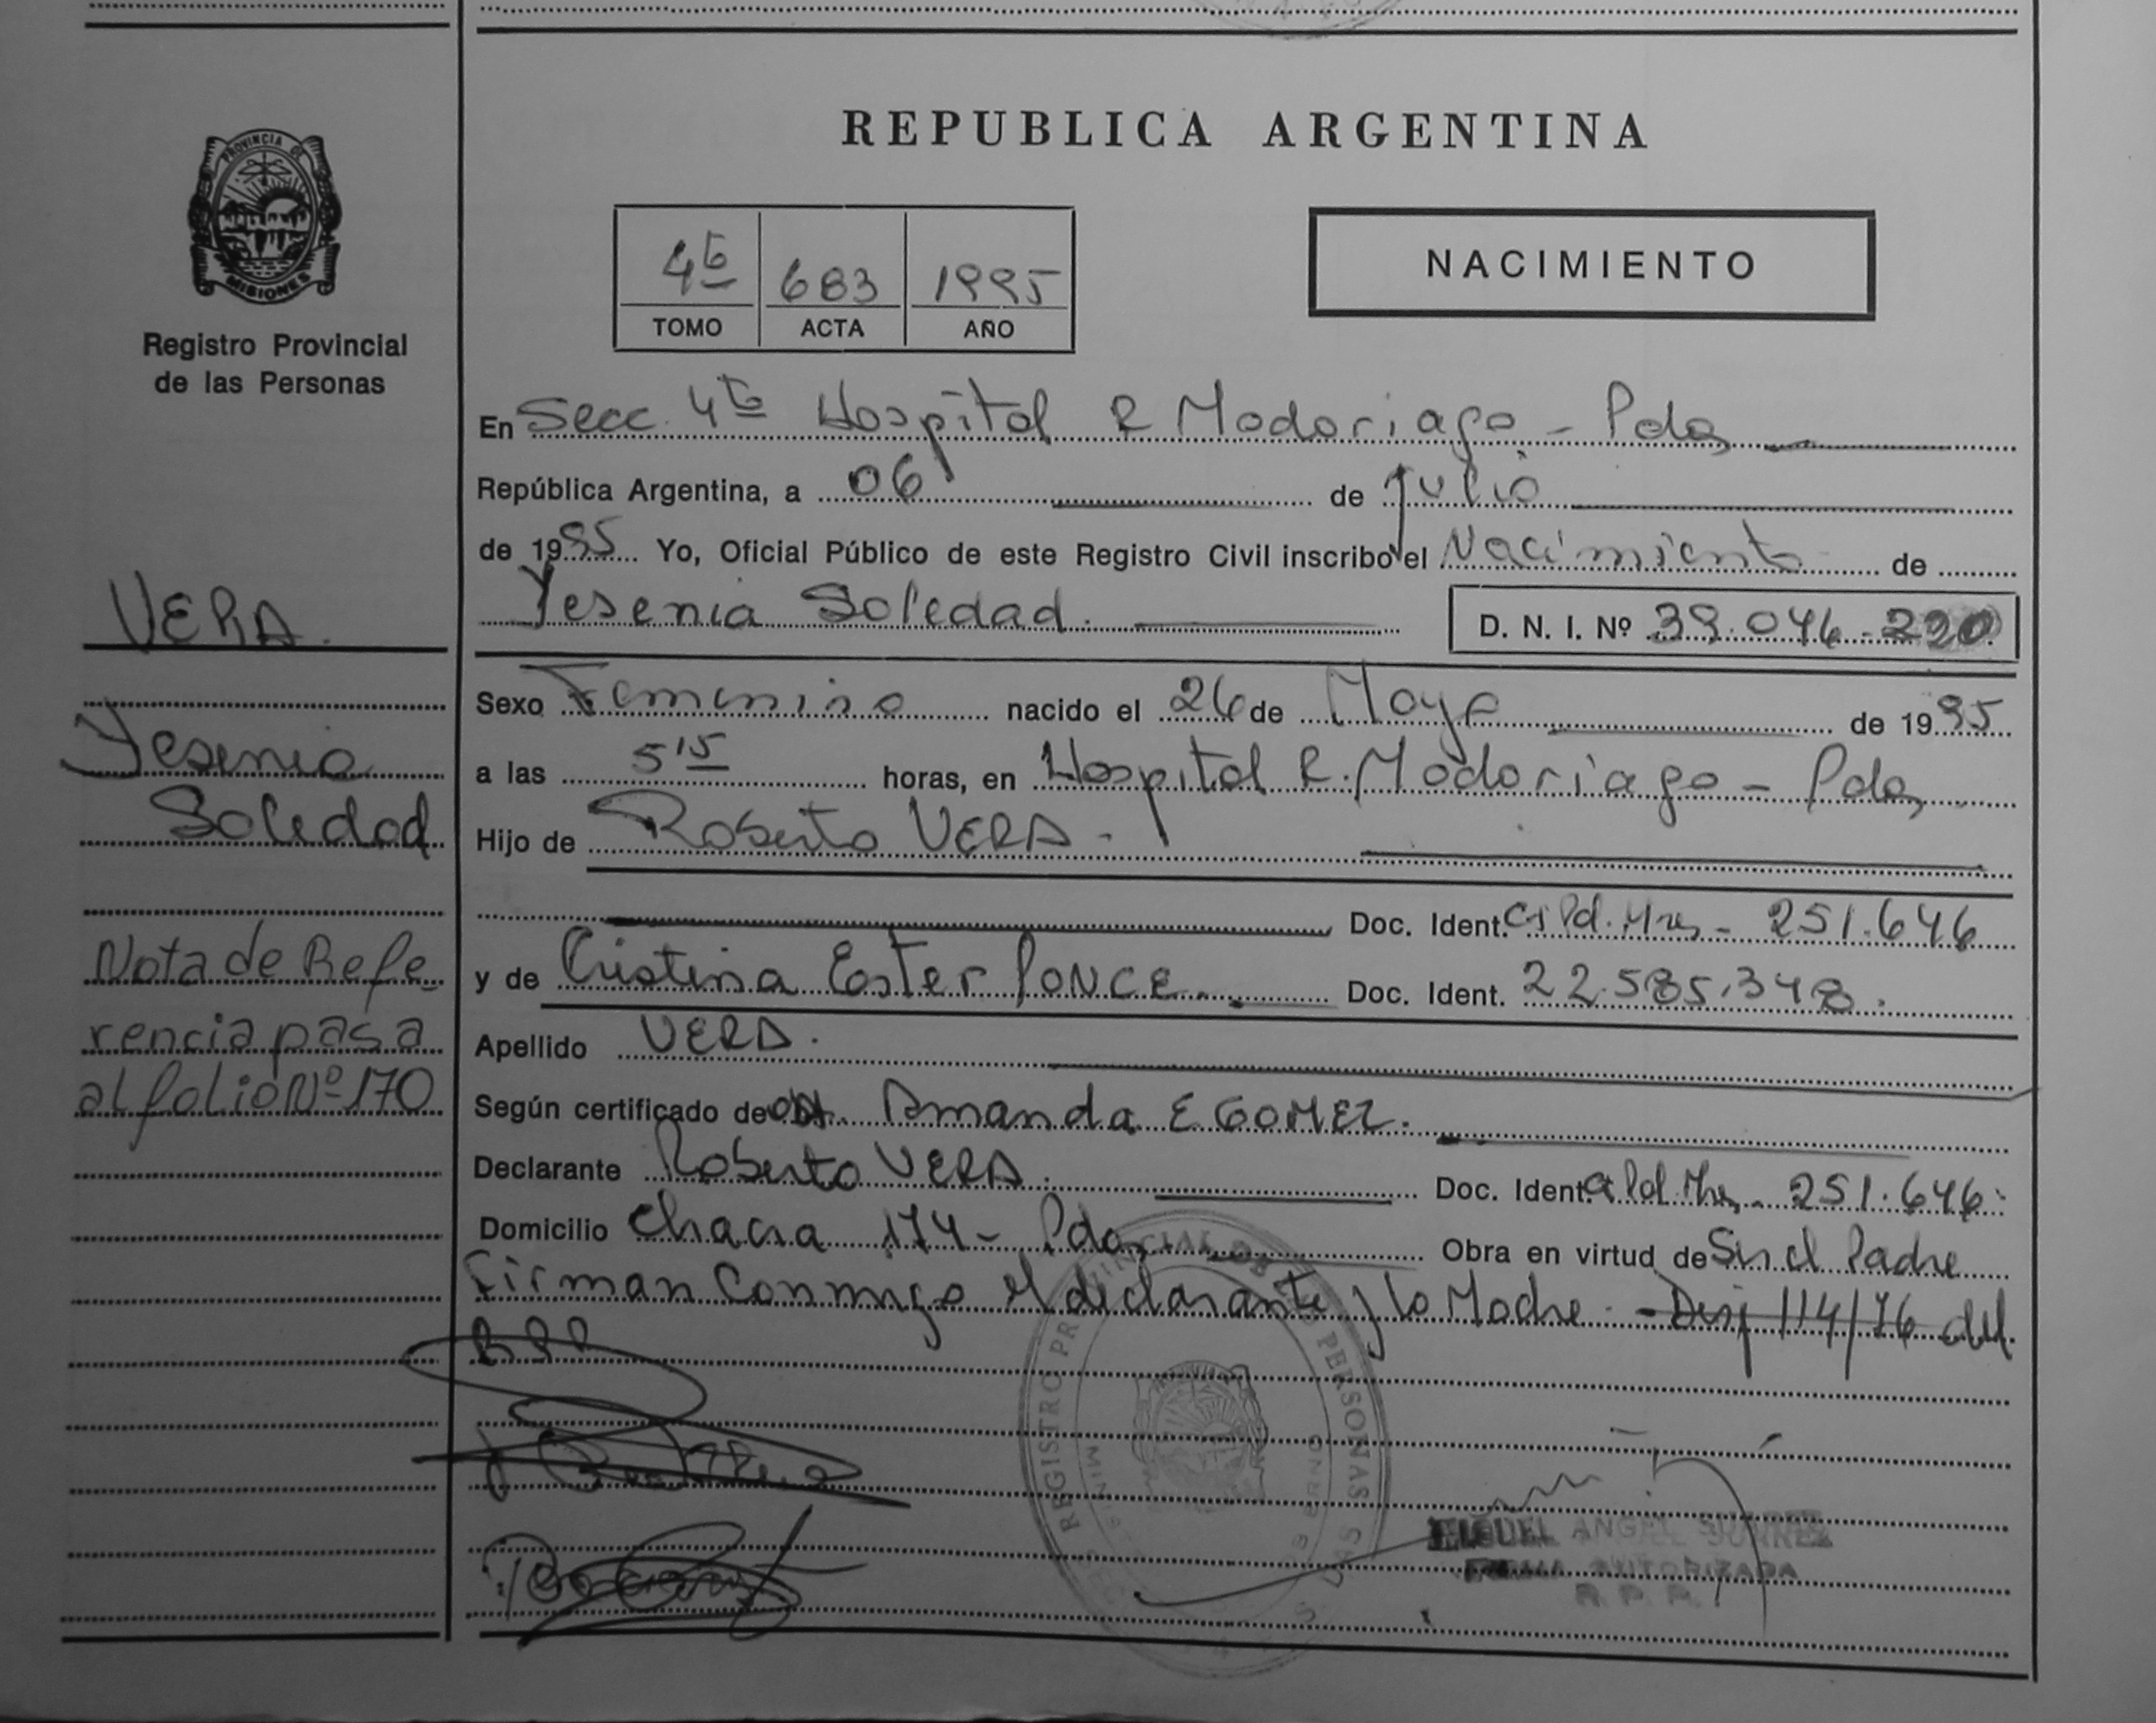 PROVINCIA DE
MISIONES
Registro Provincial
de las Personas
VERA.
Yesenia
Soledad
Nota de Refe-
rencia pasa
al folio Nº 170
REPUBLICA ARGENTINA
4ta 683 1995
TOMO ACTA AÑO
NACIMIENTO
En Secc. 4ta Hospital R Madariaga - Pdas
República Argentina, a 06 de Julio
de 1995 Yo, Oficial Público de este Registro Civil inscribo el Nacimiento de
Yesenia Soledad. D. N. I. Nº 39.046.220
Sexo Femenino nacido el 26 de Mayo de 1995
a las 5 15 horas, en Hospital R. Madariaga - Pdas
Hijo de Roberto VERA -
Doc. Ident. Pd. Mnes - 251.646
y de Cristina Ester PONCE. Doc. Ident. 22.585.348.
Apellido VERA.
Según certificado de Amanda E GOMEZ.
Declarante Roberto VERA. Doc. Ident. Pd. Mnes - 251.646
Domicilio Chacra 174 - Pdas Obra en virtud de Ser el Padre
Firman Conmigo el declarante y la Madre. - Disp 114/76 del
RPP
REGISTRO PROVINCIAL DE LAS PERSONAS
MIGUEL ANGEL SUAREZ
FIRMA AUTORIZADA
R. P. P.